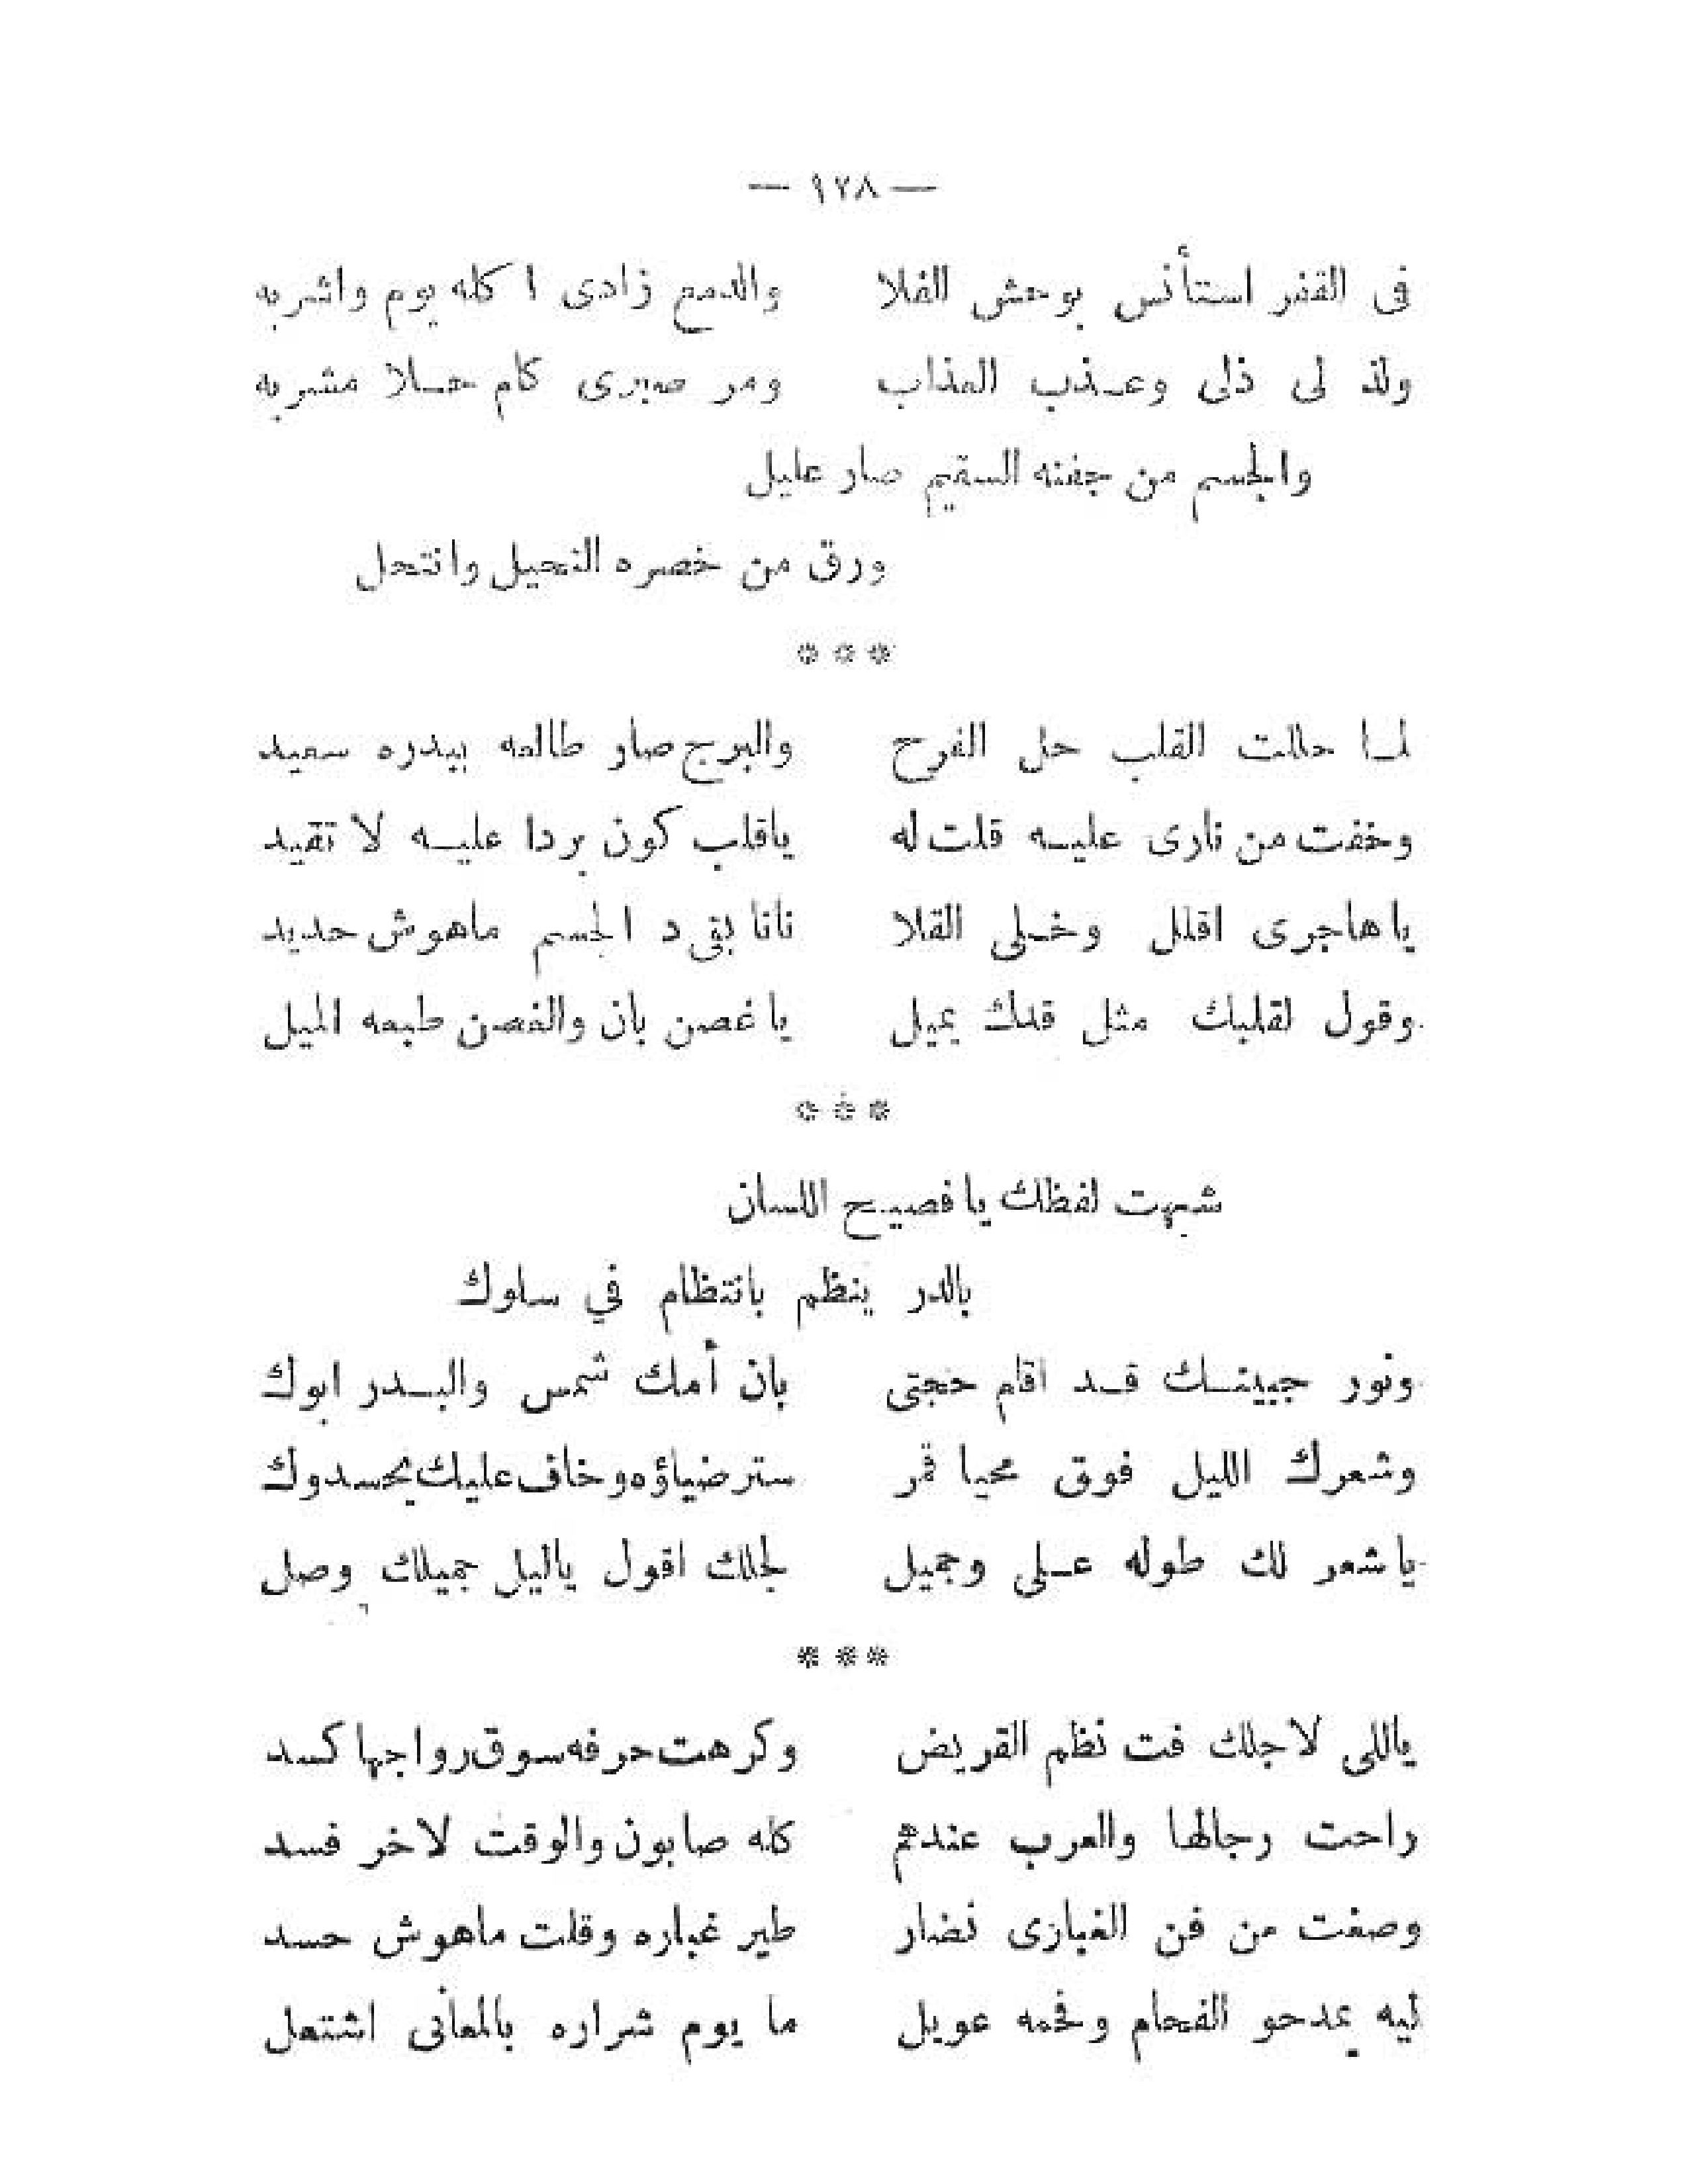 — ١٢٨ —
فى القفر استأنس بوحش الفلا والدمع زادى ا كله يوم واشربه
ولذ لى ذلى وعـذب العذاب ومر صبرى كام حـلا مشربه
والجسم من جفنه السقيم صار عليل
ورق من خصره النحيل وانتحل
* * *
لما حللت القلب حل الفرح والبرج صار طالعه ببدره سعيد
وخفت من نارى عليـه قلت له ياقلب كون بردا عليـه لا تقيد
يا هاجرى اقلل وخـلى القلا نانا بقى د الجسم ماهوش حديد
وقول لقلبك مثل قدك يميل يا غصن بان والغصن طبعه الميل
* * *
شبهت لفظك يا فصيح اللسان
بالدر ينظم بانتظام في سلوك
ونور جبينـك قـد اقام حجتى بان أمك شمس والبـدر ابوك
وشعرك الليل فوق محيا قمر ستر ضياؤه وخاف عليك يحسدوك
يا شعر لك طوله عـلى وجميل لجلك اقول ياليل جميلك وصل
* * *
ياللى لاجلك فت نظم القريض وكرهت حرفه سوق رواجها كسد
راحت رجالها والعرب عندهم كله صابون والوقت لاخر فسد
وصغت من فن الغبازى نضار طير غباره وقلت ماهوش حسد
ليه يمدحو الفحام وفحمه عويل ما يوم شراره بالمعانى اشتعل